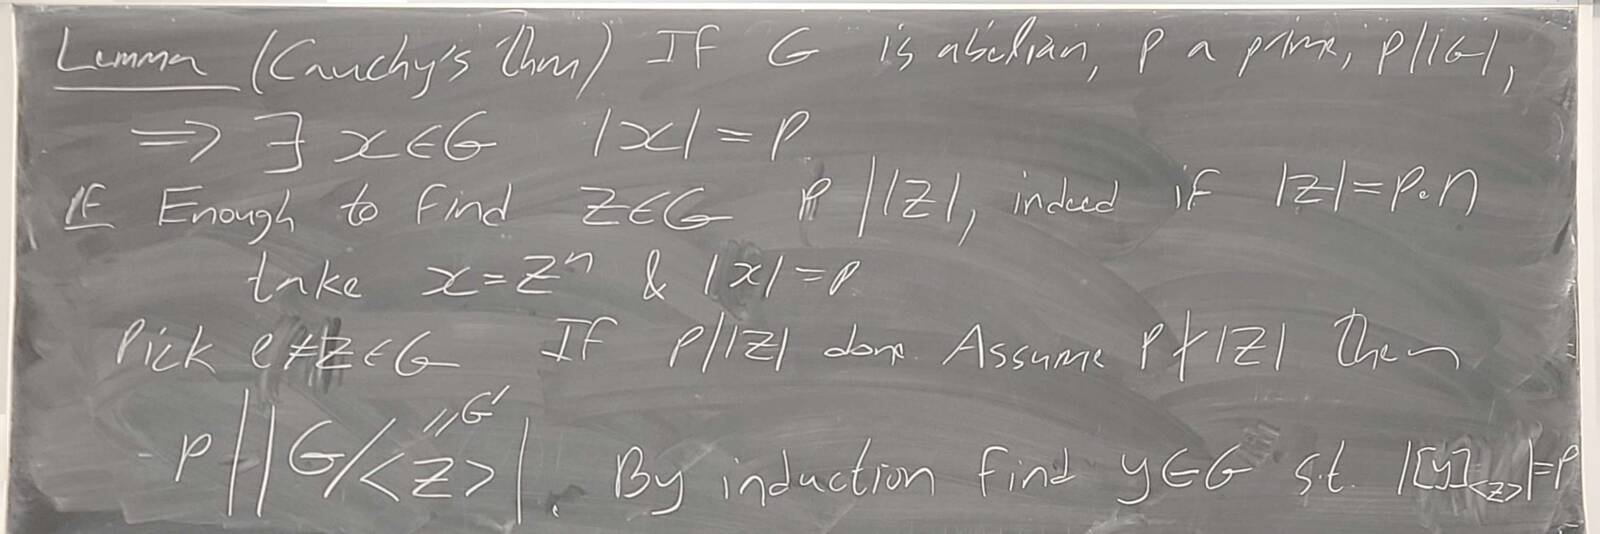 Lemma (Cauchy's Thm) If G is abelian, p a prime, p||G|,
⟹ ∃ x∈G |x| = p
Pf Enough to find z∈G p | |z|, indeed if |z|=p·n
take x=zⁿ & |x|=p
Pick e≠z∈G If p||z| done. Assume p∤|z| Then
p | |G/<z>| "G' . By induction find y∈G s.t. |[y]_<z>|=p